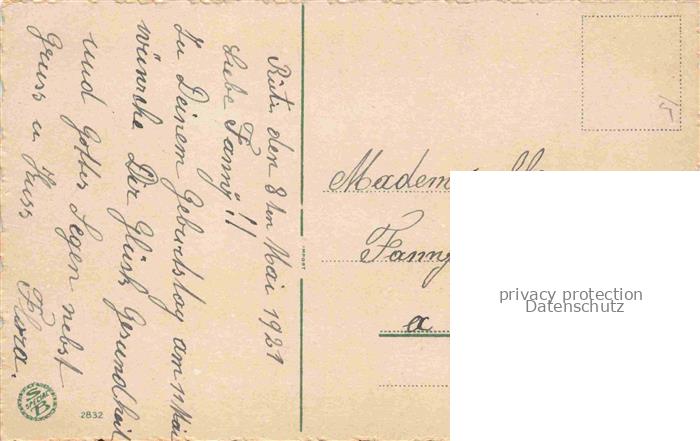 Rüti den 8ten Mai 1921
Liebe Fanny!!
Zu Deinem Geburtstag am 11 Mai
wünsche Dir Glück Gesundheit
und Gottes Segen nebst
Gruss u Kuss Flora.
Fanny
a
15
IMPORT
2832
privacy protection
Datenschutz